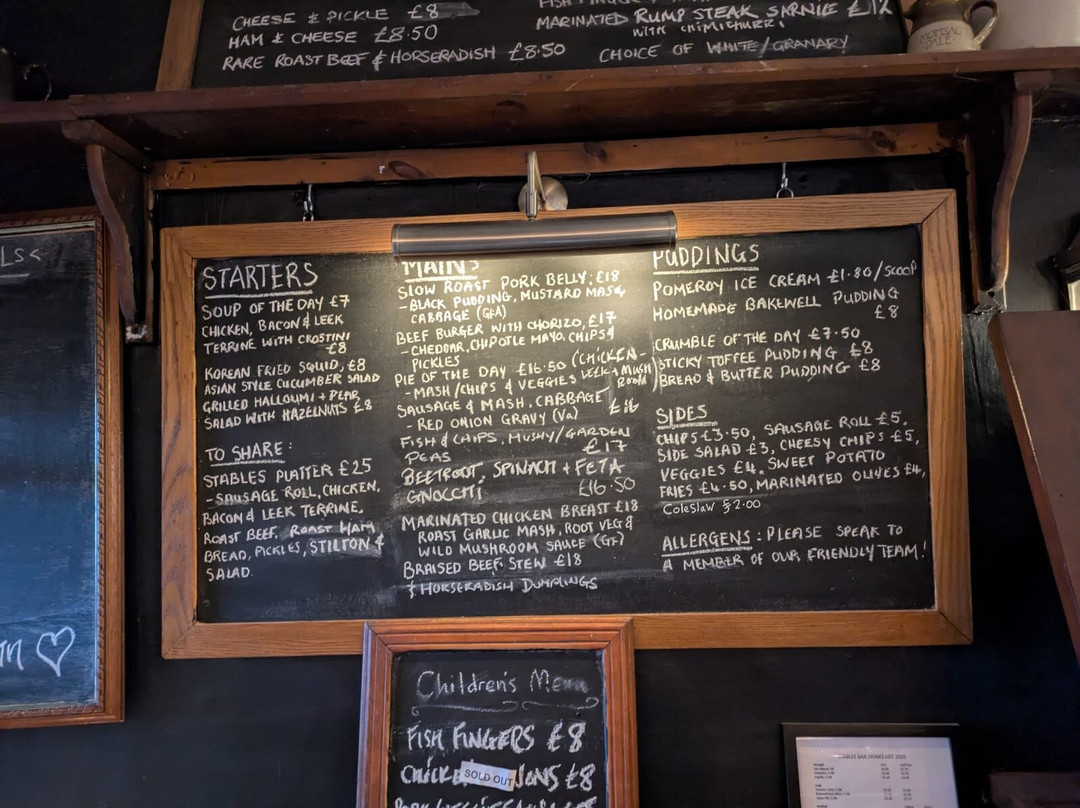 CHEESE & PICKLE £8
HAM & CHEESE £8.50
RARE ROAST BEEF & HORSERADISH £8.50
MARINATED RUMP STEAK SARNIE £12
WITH CHIMICHURRI
CHOICE OF WHITE/GRANARY
MONSAL DALE
STARTERS
SOUP OF THE DAY £7
CHICKEN, BACON & LEEK
TERRINE WITH CROSTINI
£8
KOREAN FRIED SQUID, £8
ASIAN STYLE CUCUMBER SALAD
GRILLED HALLOUMI + PEAR
SALAD WITH HAZELNUTS £8
TO SHARE:
STABLES PLATTER £25
- SAUSAGE ROLL, CHICKEN,
BACON & LEEK TERRINE,
ROAST BEEF, ROAST HAM
BREAD, PICKLES, STILTON &
SALAD.
MAINS
SLOW ROAST PORK BELLY: £18
- BLACK PUDDING, MUSTARD MASH,
CABBAGE (GFA)
BEEF BURGER WITH CHORIZO, £17
- CHEDDAR, CHIPOTLE MAYO, CHIPS &
PICKLES
PIE OF THE DAY £16.50 (CHICKEN-
LEEK + MUSH
ROOM)
- MASH/CHIPS & VEGGIES
SAUSAGE & MASH, CABBAGE
- RED ONION GRAVY (Va) £16
FISH & CHIPS, MUSHY/GARDEN
PEAS £17
BEETROOT, SPINACH + FETA
GNOCCHI £16.50
MARINATED CHICKEN BREAST £18
ROAST GARLIC MASH, ROOT VEG &
WILD MUSHROOM SAUCE (GF)
BRAISED BEEF STEW £18
& HORSERADISH DUMPLINGS
PUDDINGS
POMEROY ICE CREAM £1.80/SCOOP
HOMEMADE BAKEWELL PUDDING
£8
CRUMBLE OF THE DAY £7.50
STICKY TOFFEE PUDDING £8
BREAD & BUTTER PUDDING £8
SIDES
CHIPS £3.50, SAUSAGE ROLL £5,
SIDE SALAD £3, CHEESY CHIPS £5,
VEGGIES £4, SWEET POTATO
FRIES £4.50, MARINATED OLIVES £4,
Coleslaw £2.00
ALLERGENS: PLEASE SPEAK TO
A MEMBER OF OUR FRIENDLY TEAM!
Children's Menu
FISH FINGERS £8
SOLD OUT
£8
STABLES BAR DRINKS LIST 2025